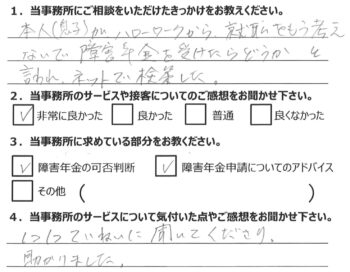 1．当事務所にご相談をいただけたきっかけをお教えください。
本人(息子)が ハローワークから、就職をもう考え
ないで 障害年金を受けたらどうか と
言われ、ネットで検索した。
2．当事務所のサービスや接客についてのご感想をお聞かせ下さい。
☑ 非常に良かった □ 良かった □ 普通 □ 良くなかった
3．当事務所に求めている部分をお教え下さい。
☑ 障害年金の可否判断 ☑ 障害年金申請についてのアドバイス
□ その他 （ ）
4．当事務所のサービスについて気付いた点やご感想をお聞かせ下さい。
1つ1つていねいに 聞いてくださり、
助かりました。